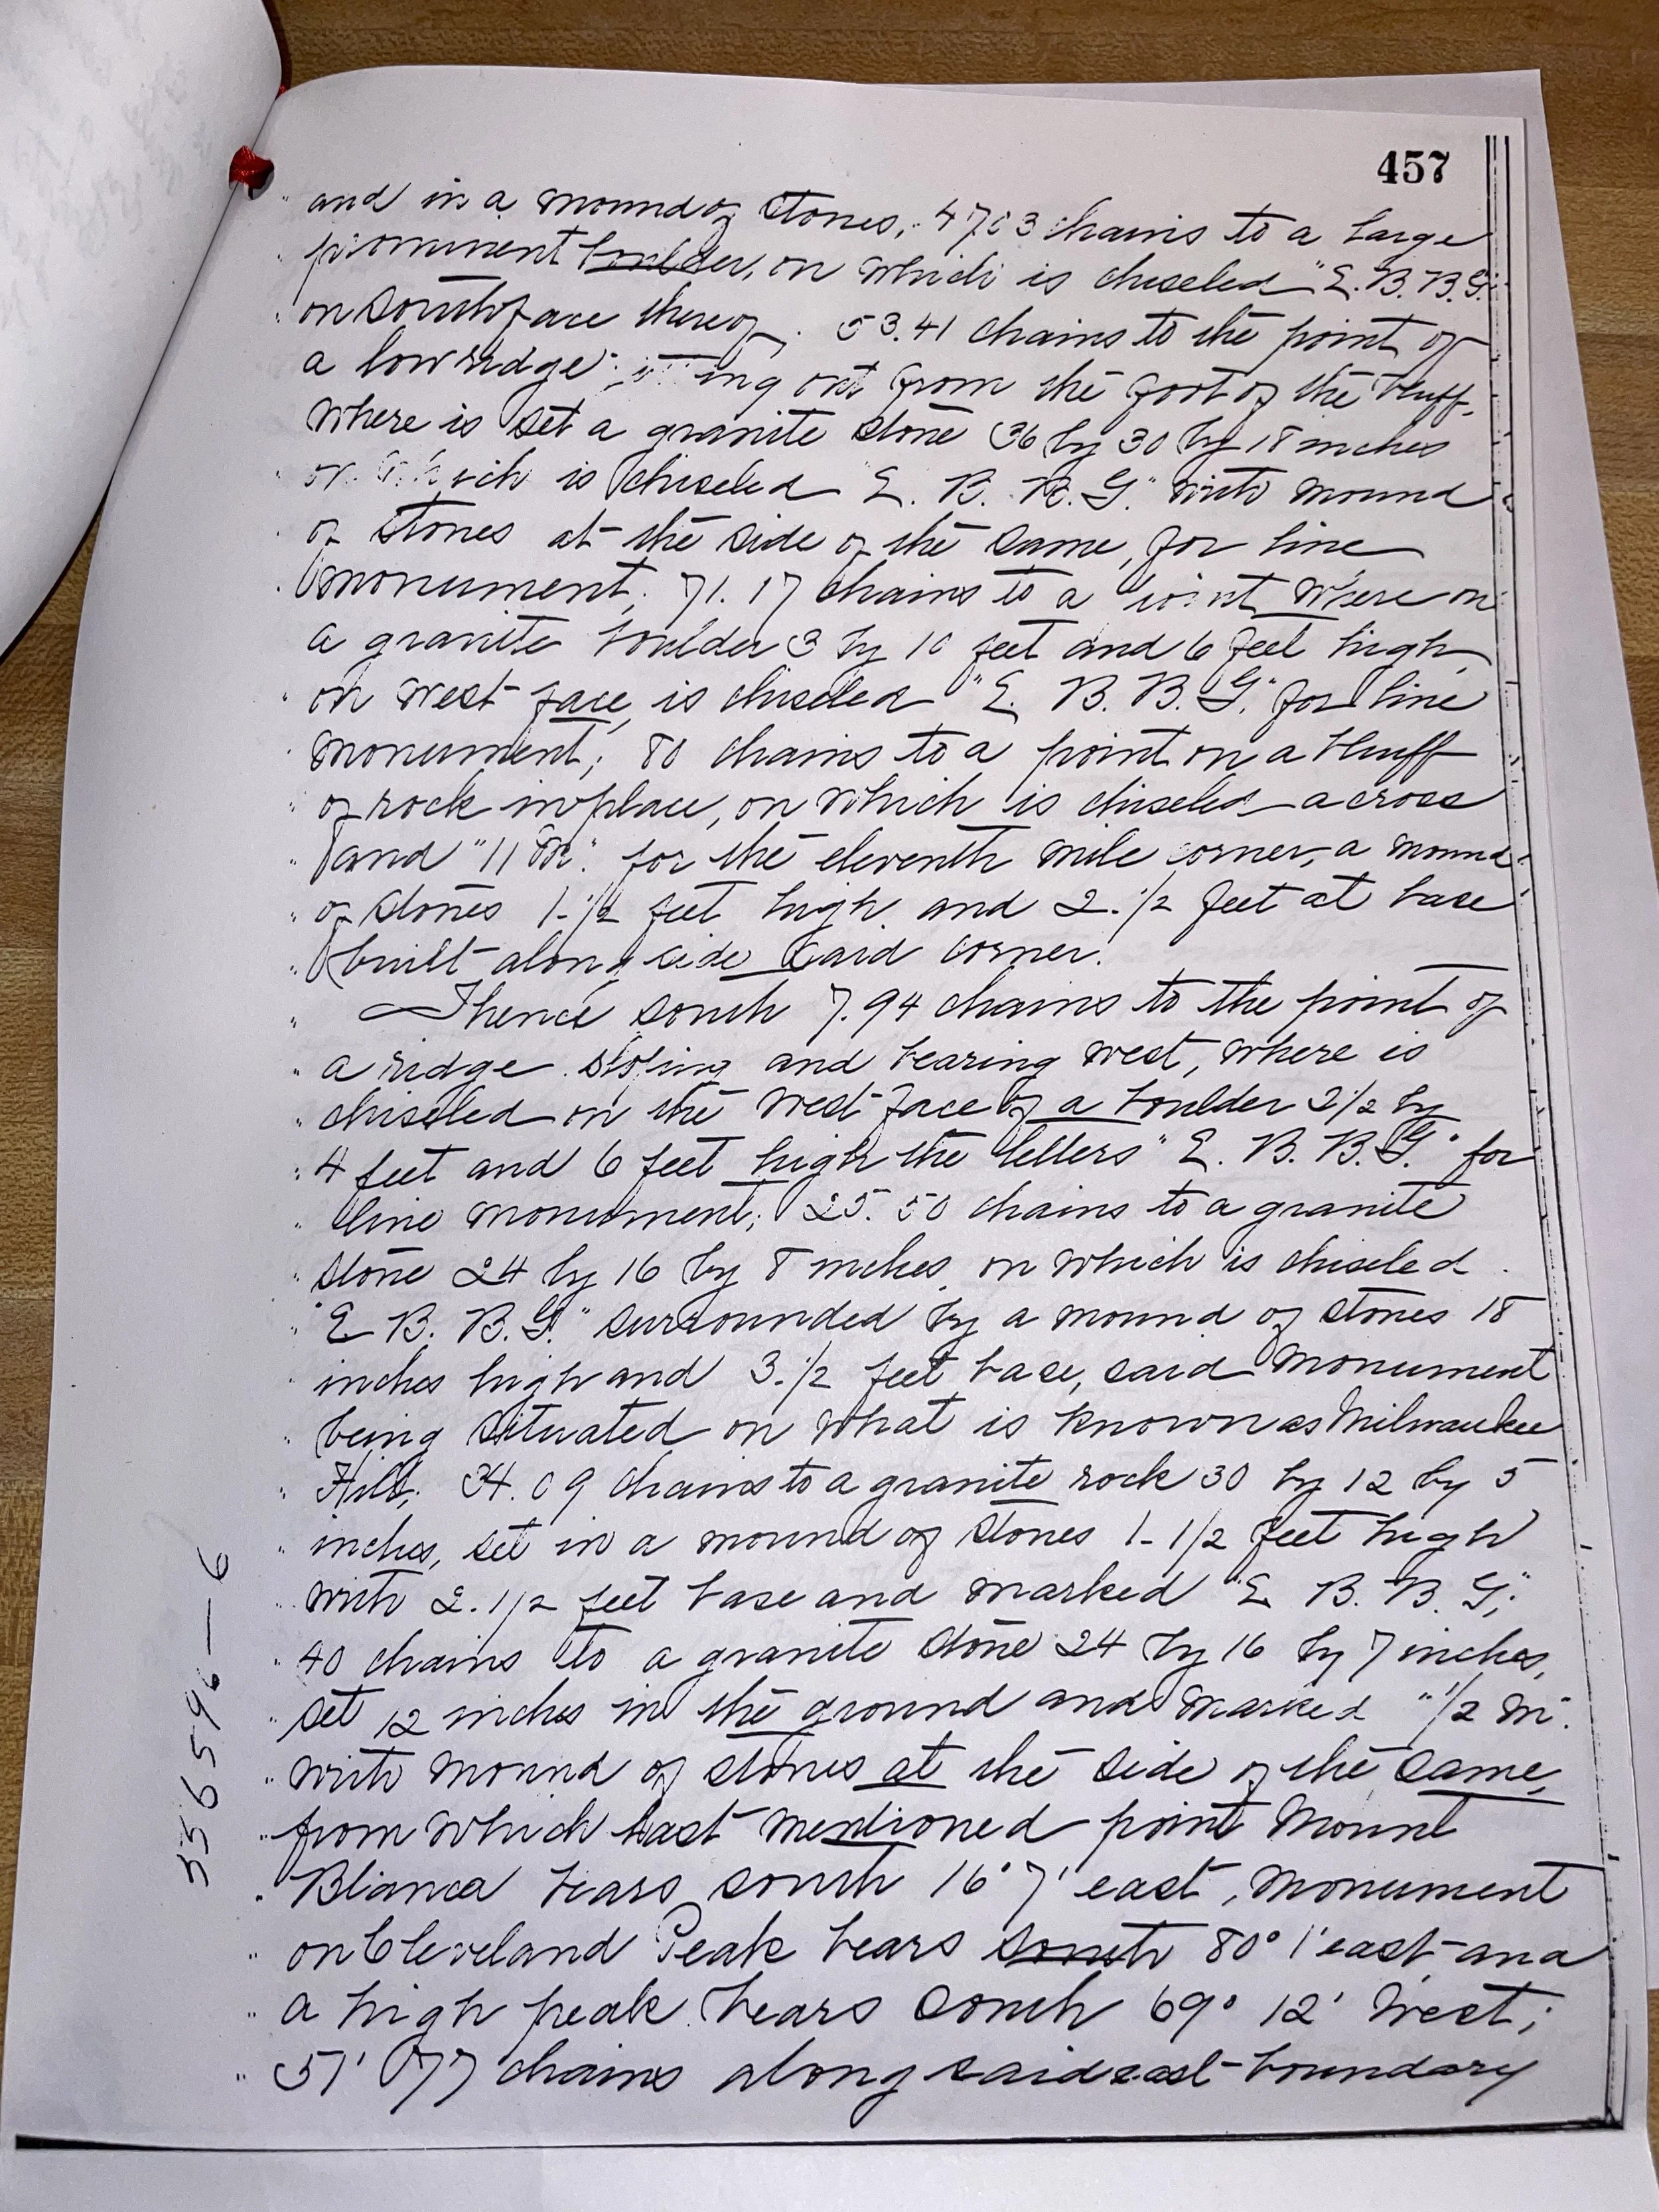 457
and in a mound of stones, 47.03 chains to a large
prominent boulder, on which is chiseled "E. B. B. G."
on south face thereof. 53.41 chains to the point of
a low ridge out from the foot of the bluff,
where is set a granite stone 36 by 30 by 18 inches
on which is chiseled "E. B. B. G." with mound
of stones at the side of the same, for line
monument; 71.17 chains to a point where on
a granite boulder 3 by 10 feet and 6 feet high,
on west face, is chiseled "E. B. B. G." for line
monument; 80 chains to a point on a bluff
of rock in place, on which is chiseled a cross
and "11 M." for the eleventh mile corner, a mound
of stones 1-1/2 feet high and 2.1/2 feet at base
built along side said corner.
Thence south 7.94 chains to the point of
a ridge sloping and bearing west, where is
chiseled on the west face of a boulder 2 1/2 by
4 feet and 6 feet high the letters "E. B. B. G." for
line monument; 25.50 chains to a granite
stone 24 by 16 by 8 inches, on which is chiseled
"E. B. B. G." surrounded by a mound of stones 18
inches high and 3.1/2 feet base, said monument
being situated on what is known as Milwaukee
Hill; 34.09 chains to a granite rock 30 by 12 by 5
inches, set in a mound of stones 1-1/2 feet high
with 2.1/2 feet base and marked "E. B. B. G";
40 chains to a granite stone 24 by 16 by 7 inches,
set 12 inches in the ground and marked "1/2 M".
with mound of stones at the side of the same,
from which last mentioned point Mount
Blanca bears south 16° 7' east, monument
on Cleveland Peak bears south 80° 1' east and
a high peak bears south 69° 12' west;
chains along said east boundary
556596-6